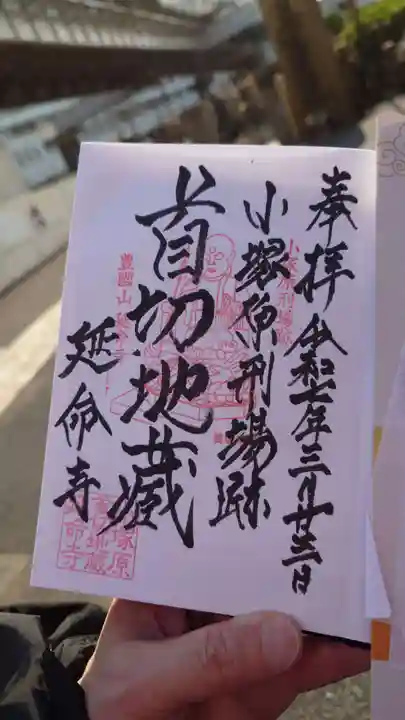 奉拝 令和七年三月廿三日
小塚原刑場跡
小塚原刑場跡
首切地蔵
豊國山 延命寺
延命寺